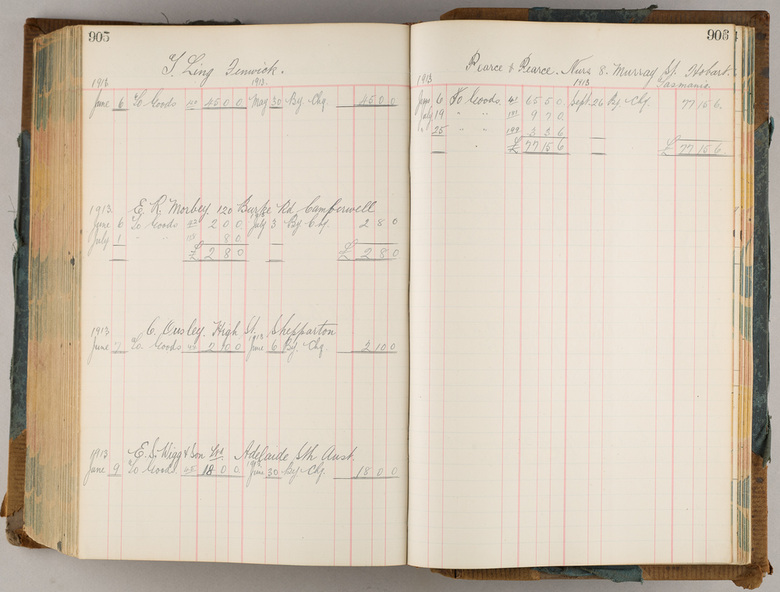 905
T. Ling Fenwick.
1913 1913
June 6 To Goods 45 0 0 May 30 By Chq. 45 0 0
1913. E. R. Morbey 120 Burke Rd Camberwell
June 6 To Goods 2 0 0 July 3 By Chq. 2 8 0
July 1 " " 8 0
£ 2 8 0 £ 2 8 0
1913 C. Ousley. High St. Shepparton
June 7 To Goods 2 0 0 June 6 By. Chq 2 10 0
1913 E. S. Wigg & Son Adelaide Sth Aust.
June 9 To Goods 18 0 0 June 30 By Chq. 18 0 0
906
Pearce & Pearce. 8. Murray St. Hobart.
Tasmania
1913 1913
June 6 To Goods. 65 5 0 Sept. 26 By Chq. 77 15 6
July 19 " " 9 7 0
" 25 " " 3 3 6
£ 77 15 6 £ 77 15 6